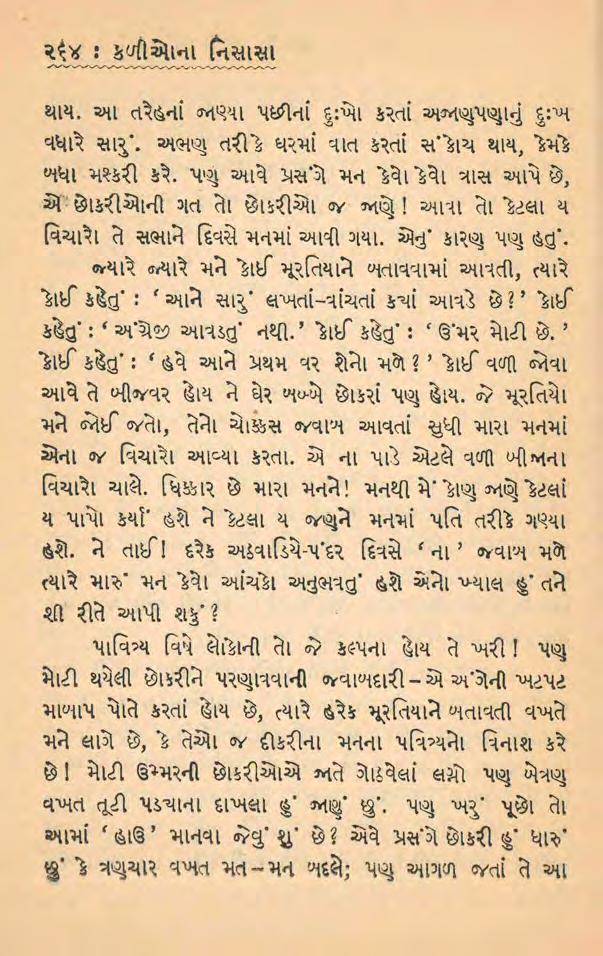 ૨૬૪ : કળીઓના નિસાસા
થાય. આ તરેહનાં જાણ્યા પછીનાં દુઃખો કરતાં અજાણપણાનું દુઃખ
વધારે સારું. અભણ તરીકે ઘરમાં વાત કરતાં સંકોચ થાય, કેમકે
બધા મશ્કરી કરે. પણ આવે પ્રસંગે મન કેવો કેવો ત્રાસ આપે છે,
એ છોકરીઓની ગત તો છોકરીઓ જ જાણે! આવા તો કેટલા ય
વિચારો તે સભાને દિવસે મનમાં આવી ગયા. એનું કારણ પણ હતું.
જ્યારે જ્યારે મને કોઈ મૂરતિયાને બતાવવામાં આવતી, ત્યારે
કોઈ કહેતું : ‘આને સારું લખતાં–વાંચતાં ક્યાં આવડે છે?’ કોઈ
કહેતું : ‘અંગ્રેજી આવડતું નથી.’ કોઈ કહેતું : ‘ઉંમર મોટી છે.’
કોઈ કહેતું : ‘હવે આને પ્રથમ વર શેનો મળે?’ કોઈ વળી જોવા
આવે તે બીજવર હોય ને ઘેર બબ્બે છોકરાં પણ હોય. જે મૂરતિયો
મને જોઈ જતો, તેનો ચોક્કસ જવાબ આવતાં સુધી મારા મનમાં
એના જ વિચારો આવ્યા કરતા. એ ના પાડે એટલે વળી બીજાના
વિચારો ચાલે. ધિક્કાર છે મારા મનને! મનથી મેં કોણ જાણે કેટલાં
ય પાપો કર્યાં હશે ને કેટલા ય જણને મનમાં પતિ તરીકે ગણ્યા
હશે. ને તાઈ! દરેક અઠવાડિયે-પંદર દિવસે ‘ના’ જવાબ મળે
ત્યારે મારું મન કેવો આંચકો અનુભવતું હશે એનો ખ્યાલ હું તને
શી રીતે આપી શકું?
પાવિત્ર્ય વિષે લોકોની તો જે કલ્પના હોય તે ખરી! પણ
મોટી થયેલી છોકરીને પરણાવવાની જવાબદારી – એ અંગેની ખટપટ
માબાપ પોતે કરતાં હોય છે, ત્યારે હરેક મૂરતિયાને બતાવતી વખતે
મને લાગે છે, કે તેઓ જ દીકરીના મનના પવિત્ર્યનો વિનાશ કરે
છે! મોટી ઉમ્મરની છોકરીઓએ જાતે ગોઠવેલાં લગ્નો પણ બેત્રણ
વખત તૂટી પડ્યાના દાખલા હું જાણું છું. પણ ખરું પૂછો તો
આમાં ‘હાઉ’ માનવા જેવું શું છે? એવે પ્રસંગે છોકરી હું ધારું
છું કે ત્રણચાર વખત મત – મન બદલે; પણ આગળ જતાં તે આ